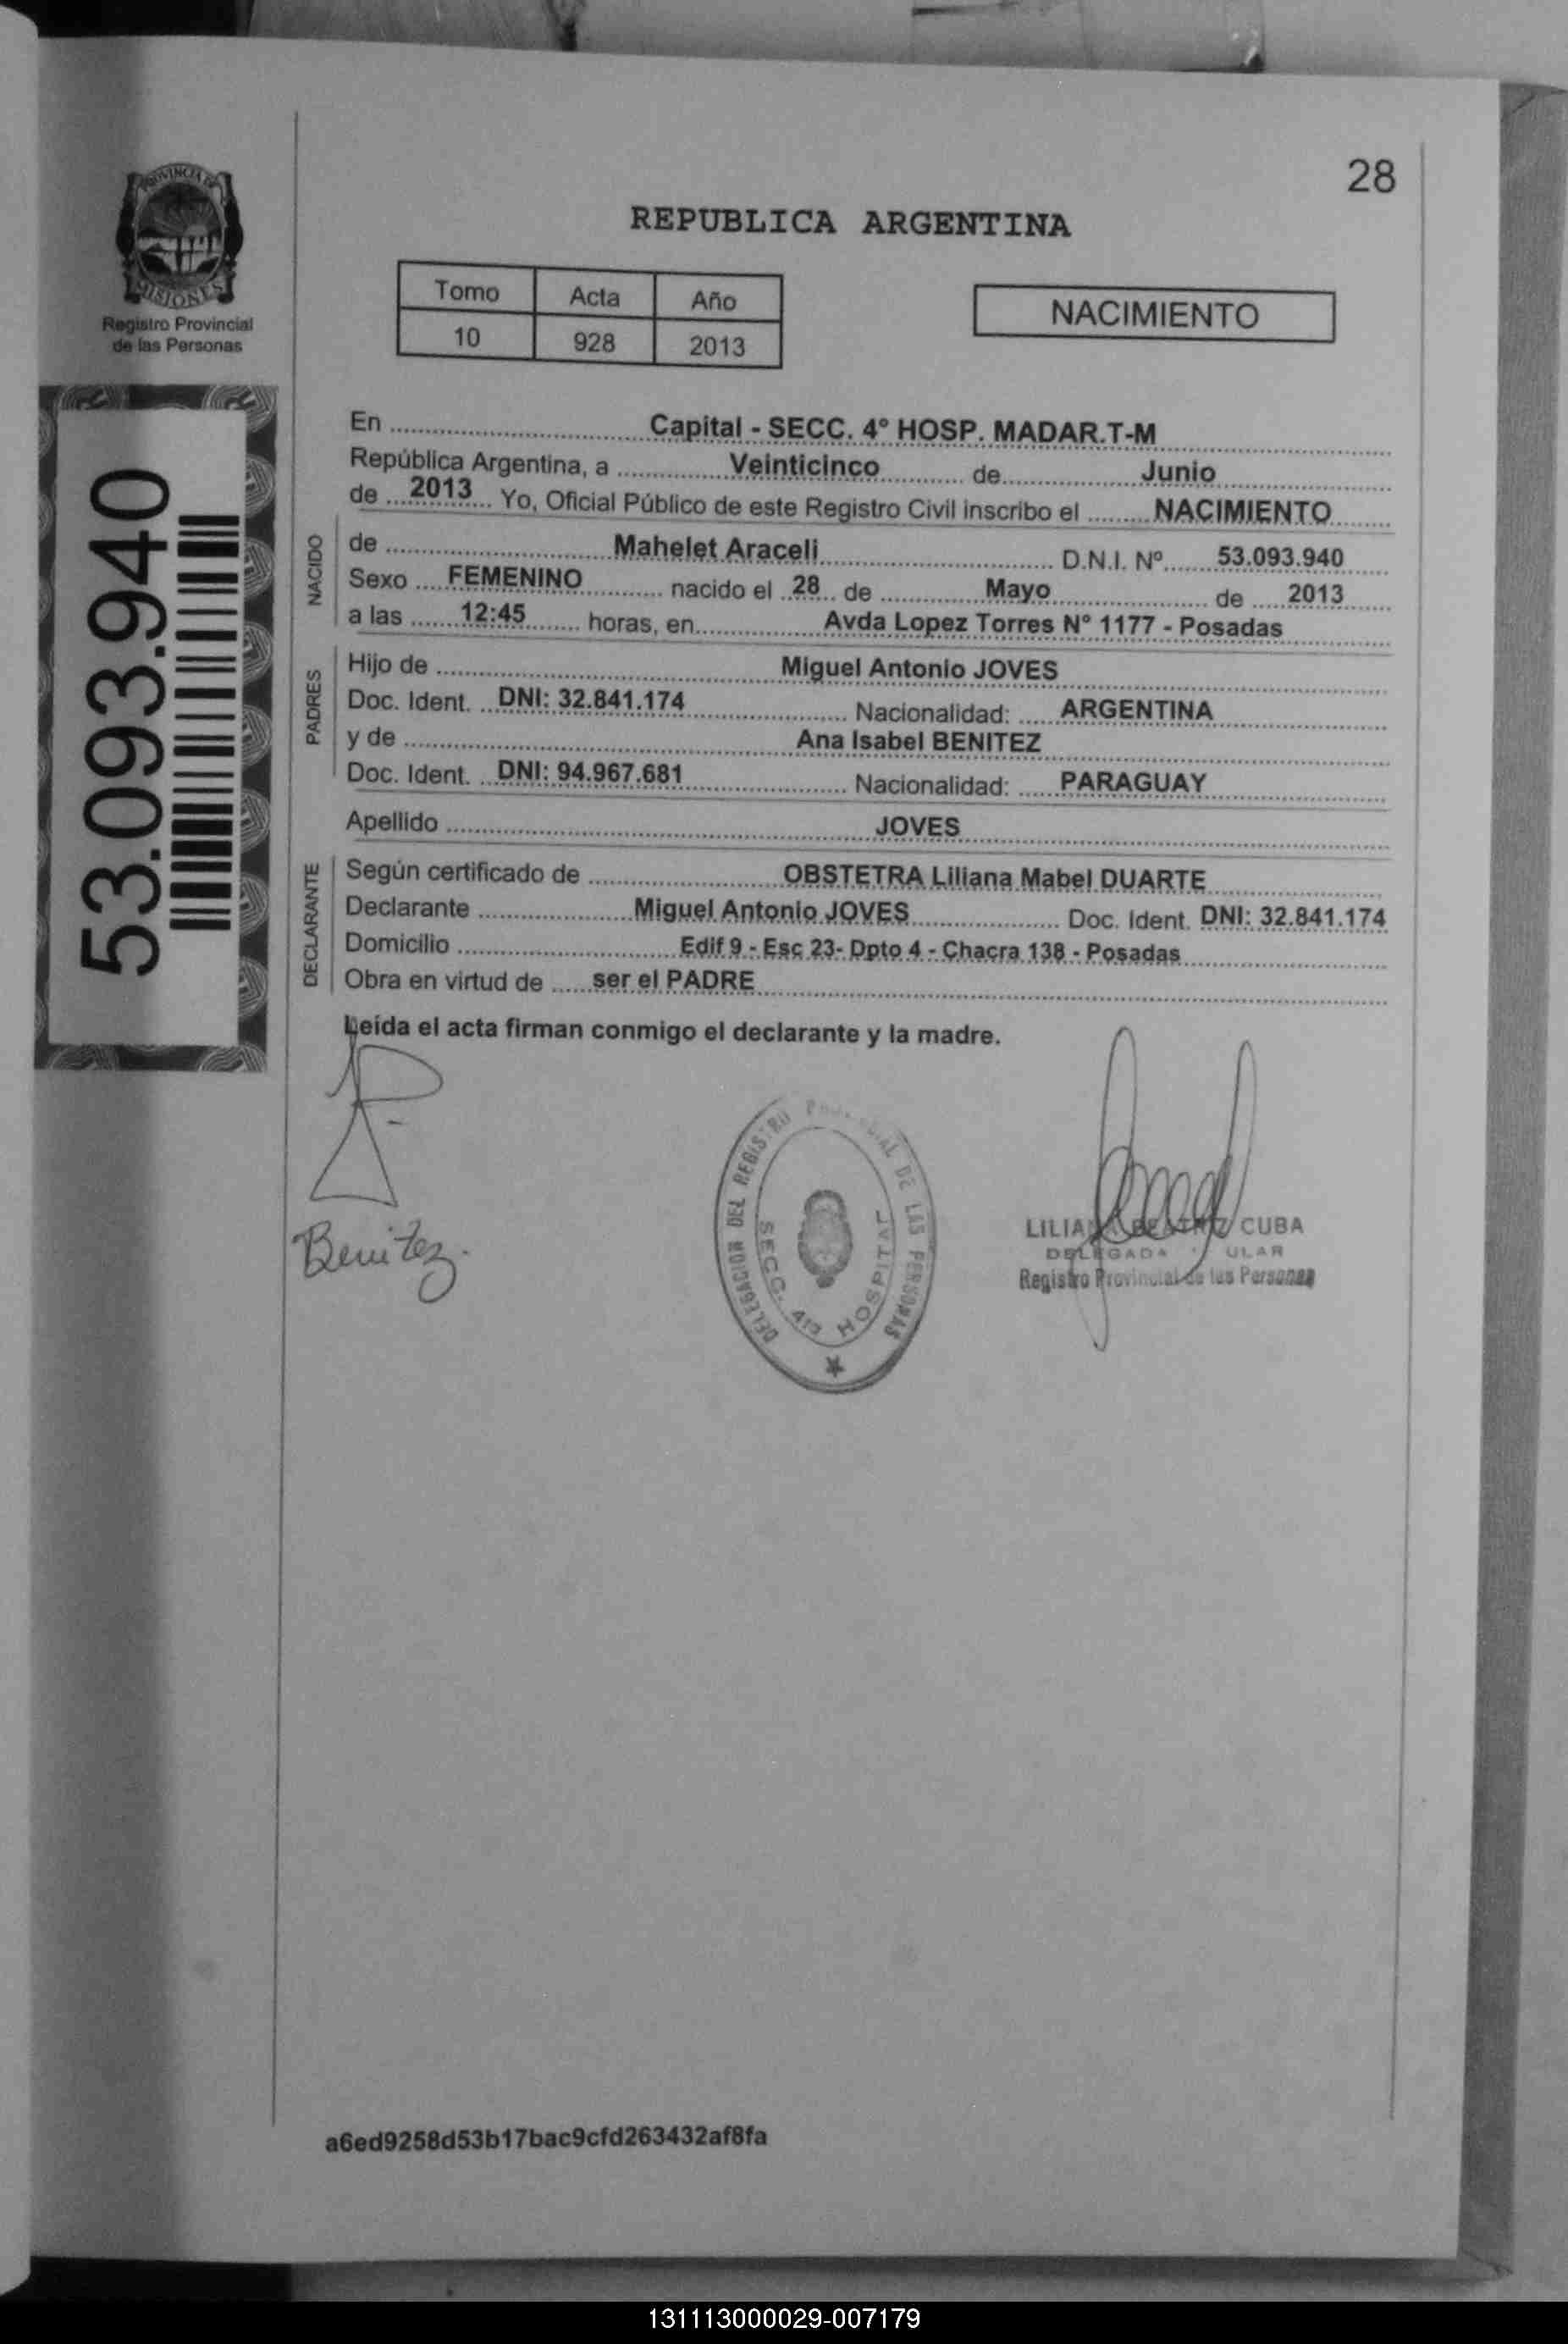 28
PROVINCIA DE
MISIONES
Registro Provincial
de las Personas
REPUBLICA ARGENTINA
Tomo Acta Año
10 928 2013
NACIMIENTO
53.093.940
En Capital - SECC. 4° HOSP. MADAR.T-M
República Argentina, a Veinticinco de Junio
de 2013 Yo, Oficial Público de este Registro Civil inscribo el NACIMIENTO
NACIDO
de Mahelet Araceli D.N.I. Nº 53.093.940
Sexo FEMENINO nacido el 28 de Mayo de 2013
a las 12:45 horas, en Avda Lopez Torres N° 1177 - Posadas
PADRES
Hijo de Miguel Antonio JOVES
Doc. Ident. DNI: 32.841.174 Nacionalidad: ARGENTINA
y de Ana Isabel BENITEZ
Doc. Ident. DNI: 94.967.681 Nacionalidad: PARAGUAY
Apellido JOVES
DECLARANTE
Según certificado de OBSTETRA Liliana Mabel DUARTE
Declarante Miguel Antonio JOVES Doc. Ident. DNI: 32.841.174
Domicilio Edif 9 - Esc 23- Dpto 4 - Chacra 138 - Posadas
Obra en virtud de ser el PADRE
Leída el acta firman conmigo el declarante y la madre.
Benitez.
DELEGACION DEL REGISTRO PROVINCIAL DE LAS PERSONAS
SECC. 4ta HOSPITAL
LILIANA BEATRIZ CUBA
DELEGADA
Registro Provincial de las Personas
a6ed9258d53b17bac9cfd263432af8fa
131113000029-007179